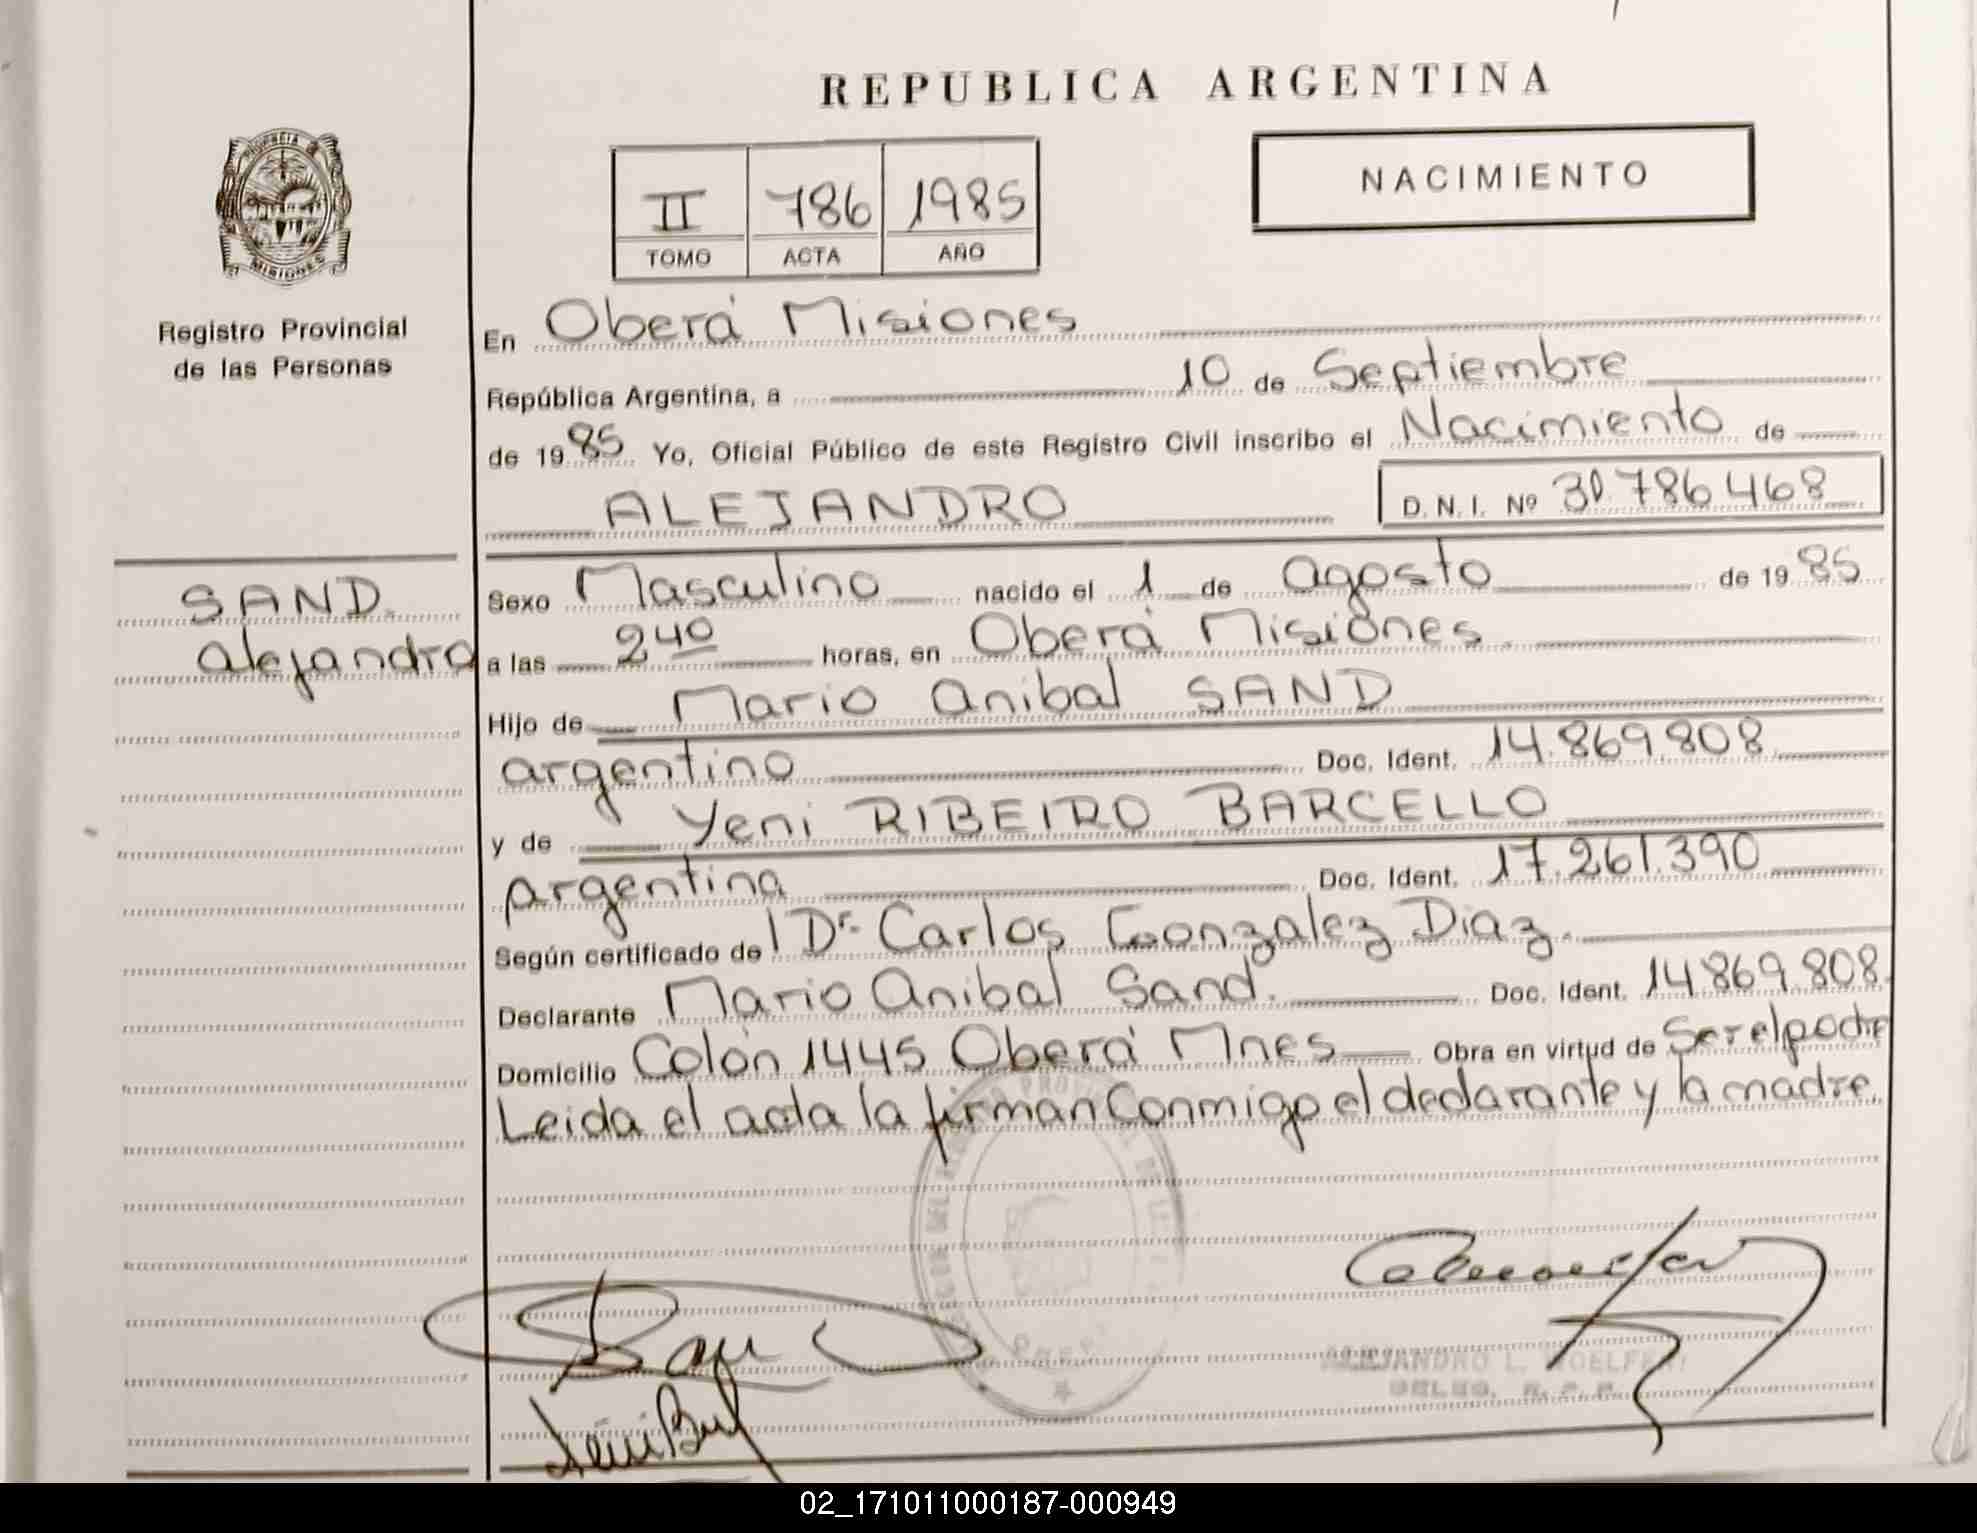 REPUBLICA ARGENTINA
PROVINCIA DE
MISIONES
Registro Provincial
de las Personas
II 786 1985
TOMO ACTA AÑO
NACIMIENTO
En Oberá Misiones
República Argentina, a 10 de Septiembre
de 1985 Yo, Oficial Público de este Registro Civil inscribo el Nacimiento de
ALEJANDRO D.N.I. Nº 30.786.468
SAND
Alejandro
Sexo Masculino nacido el 1 de Agosto de 1985
a las 2 40 horas, en Oberá Misiones
Hijo de Mario Anibal SAND
argentino Doc. Ident. 14.869.808
y de Yeni RIBEIRO BARCELLO
argentina Doc. Ident. 17.261.390
Según certificado de Dr. Carlos Gonzalez Diaz.
Declarante Mario Anibal Sand. Doc. Ident. 14.869.808.
Domicilio Colón 1445 Oberá Mnes Obra en virtud de Ser el padre
Leida el acta la firman Conmigo el declarante y la madre.
ALEJANDRO L.
DELEG. R. P. P.
02_171011000187-000949